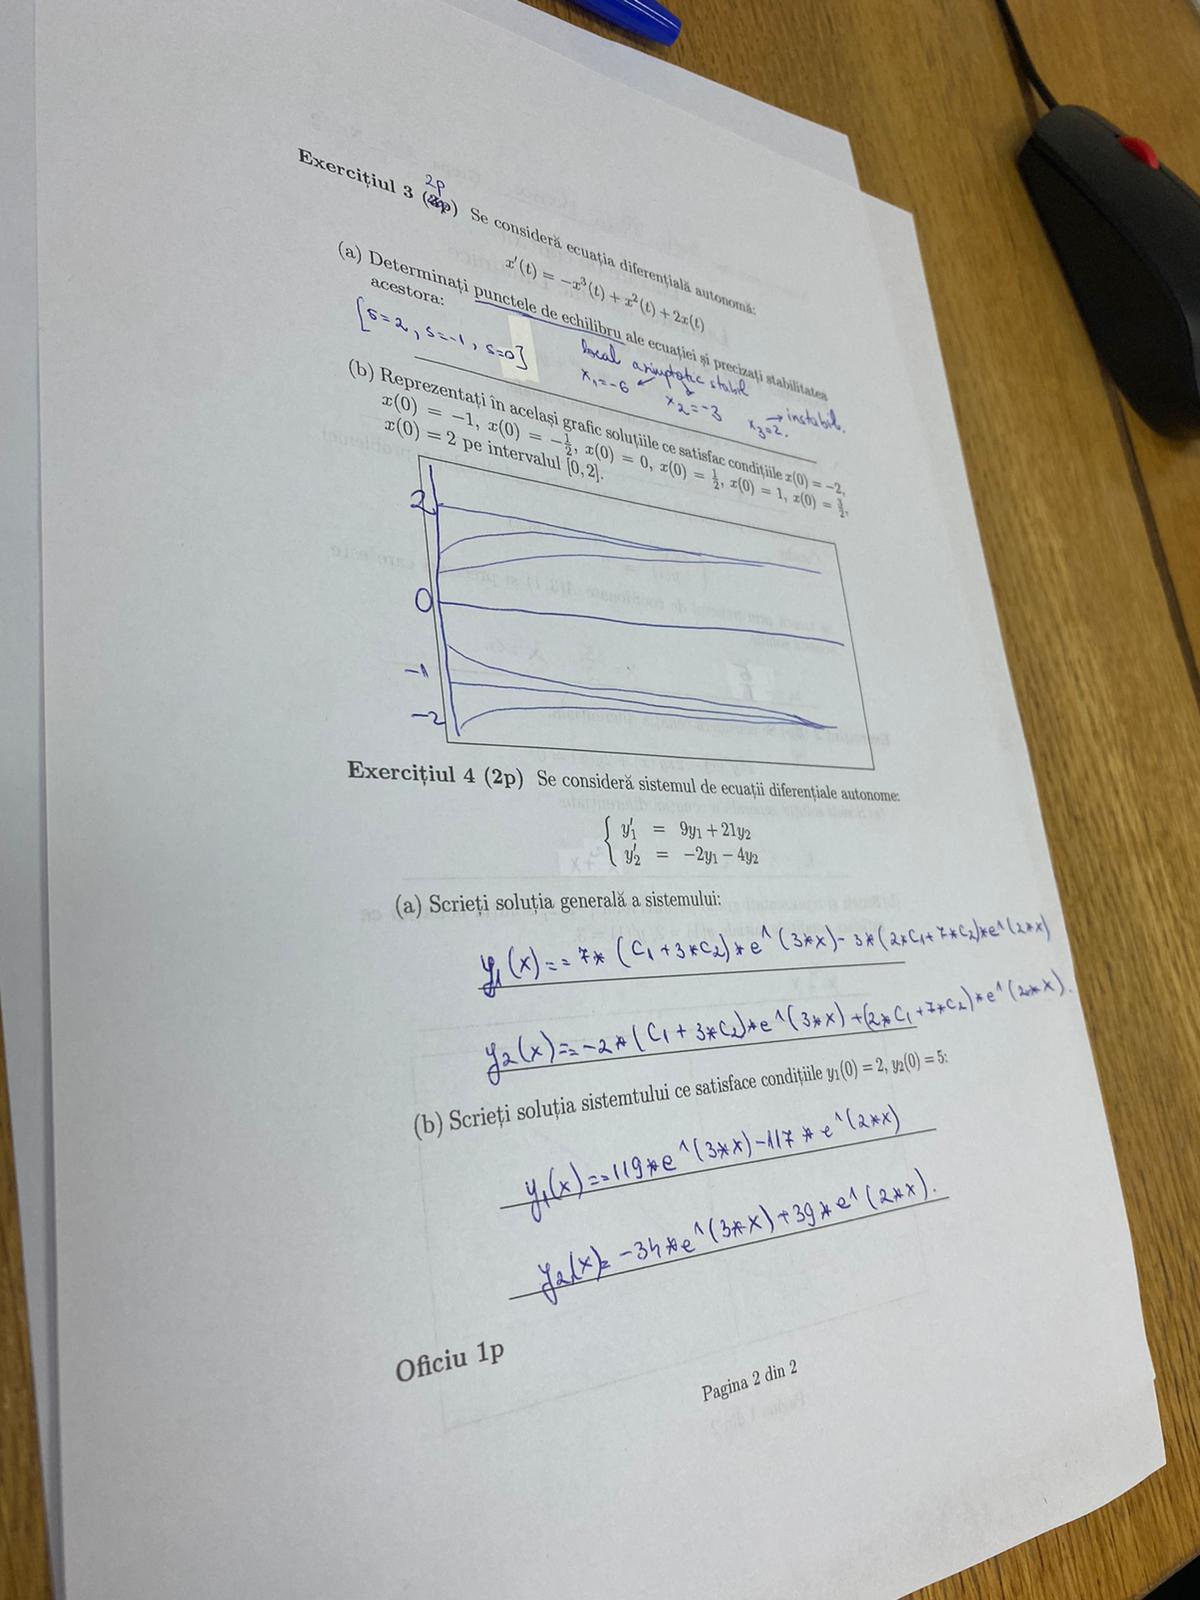 2p
Exercițiul 3 ( ) Se consideră ecuația diferențială autonomă:
x′(t) = −x³(t) + x²(t) + 2x(t)
(a) Determinați punctele de echilibru ale ecuației și precizați stabilitatea
acestora:
[s=2, s=-1, s=0]
local asimptotic stabil
x₁=-6
x₂=-3
x₃=2.
→ instabil.
(b) Reprezentați în același grafic soluțiile ce satisfac condițiile x(0) = −2,
x(0) = −1, x(0) = −1/2, x(0) = 0, x(0) = 1/2, x(0) = 1, x(0) = 3/2,
x(0) = 2 pe intervalul [0, 2].
2
0
-1
-2
Exercițiul 4 (2p) Se consideră sistemul de ecuații diferențiale autonome:
y′₁ = 9y₁ + 21y₂
y′₂ = −2y₁ − 4y₂
(a) Scrieți soluția generală a sistemului:
y₁(x)== 7*(C₁+3*C₂)*e^(3*x)-3*(2*C₁+7*C₂)*e^(2*x)
y₂(x)==-2*(C₁+3*C₂)*e^(3*x)+(2*C₁+7*C₂)*e^(2*x).
(b) Scrieți soluția sistemtului ce satisface condițiile y₁(0) = 2, y₂(0) = 5:
y₁(x)==119*e^(3*x)-117*e^(2*x)
y₂(x)=-34*e^(3*x)+39*e^(2*x).
Oficiu 1p
Pagina 2 din 2